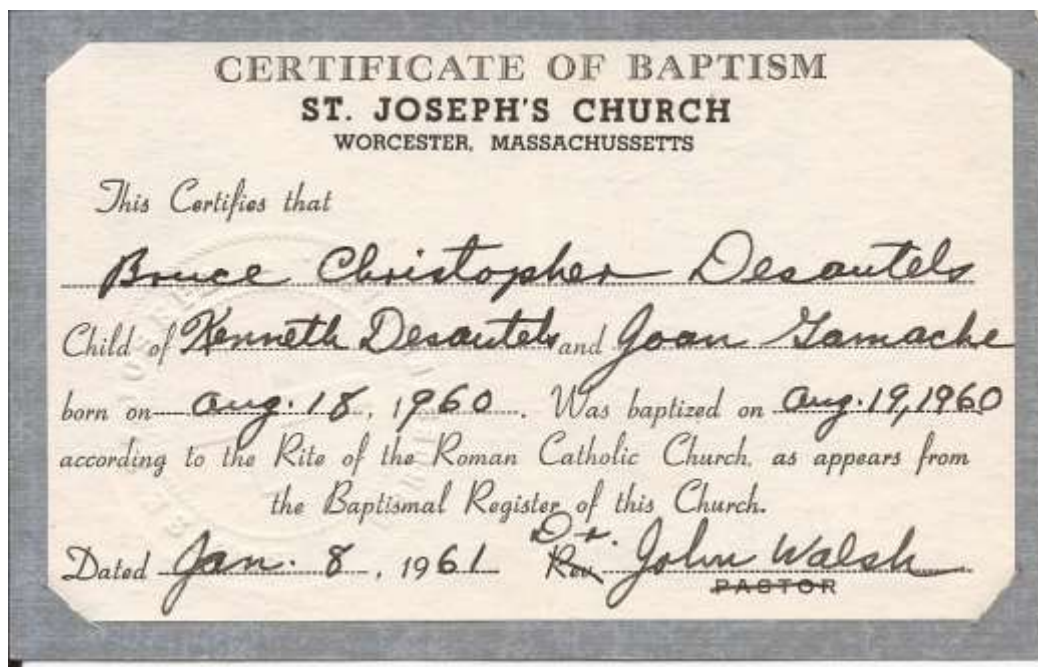 CERTIFICATE OF BAPTISM
ST. JOSEPH'S CHURCH
WORCESTER, MASSACHUSSETTS
This Certifies that
Bruce Christopher Desautels
Child of Kenneth Desautels and Joan Gamache
born on Aug. 18, 1960. Was baptized on Aug. 19, 1960
according to the Rite of the Roman Catholic Church, as appears from
the Baptismal Register of this Church.
Dr.
Dated Jan. 8, 1961 Rev. John Walsh
PASTOR